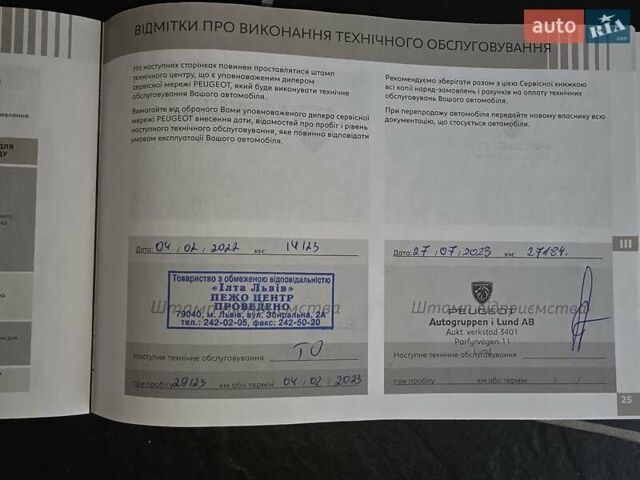 auto RIA.com
ВІДМІТКИ ПРО ВИКОНАННЯ ТЕХНІЧНОГО ОБСЛУГОВУВАННЯ
На наступних сторінках повинен проставлятися штамп
технічного центру, що є уповноваженим дилером
сервісної мережі PEUGEOT, який буде виконувати технічне
обслуговування Вашого автомобіля.
Вимагайте від обраного Вами уповноваженого дилера сервісної
мережі PEUGEOT внесення дати, відомостей про пробіг і рівень
наступного технічного обслуговування, яке повинно відповідати
умовам експлуатації Вашого автомобіля.
Рекомендуємо зберігати разом з цією Сервісної книжкою
всі копії наряд-замовлень і рахунків на оплату технічних
обслуговувань Вашого автомобіля.
При перепродажу автомобіля передайте новому власнику всю
документацію, що стосується автомобіля.
Дата: 04 / 02 / 2022 км: 14123
Товариство з обмеженою відповідальністю
«Ілта Львів»
ПЕЖО ЦЕНТР
ПРОВЕДЕНО
79040, м. Львів, вул. Збиральна, 2А
тел.: 242-02-05, факс: 242-50-20
Штамп підприємства
Наступне технічне обслуговування ТО
при пробігу 29123 км або термін 04 / 02 / 2023
Дата: 27 / 07 / 2023 км: 27184.
PEUGEOT
Штамп підприємства
Autogruppen i Lund AB
Aukt verkstod 3401
Parfyrvägen 11
Наступне технічне обслуговування
при пробігу км або термін / /
III
25